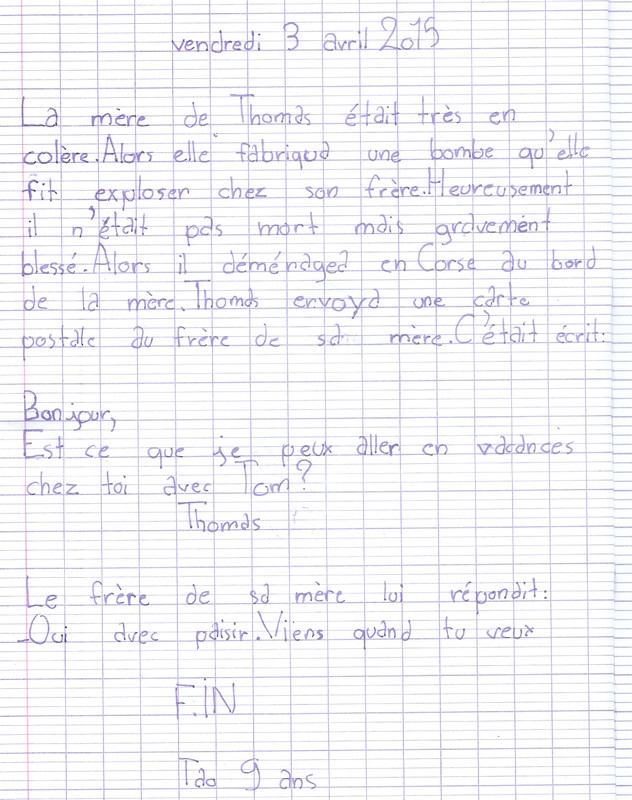 vendredi 3 avril 2015
La mère de Thomas était très en
colère.Alors elle fabriqua une bombe qu'elle
fit exploser chez son frère.Heureusement
il n'était pas mort mais gravement
blessé.Alors il déménagea en Corse au bord
de la mère.Thomas envoya une carte
postale au frère de sa mère.C'était écrit:
Bonjour,
Est ce que je peux aller en vacances
chez toi avec Tom?
Thomas
Le frère de sa mère lui répondit:
_Oui avec paisir.Viens quand tu veux
F.iN
Tao 9 ans